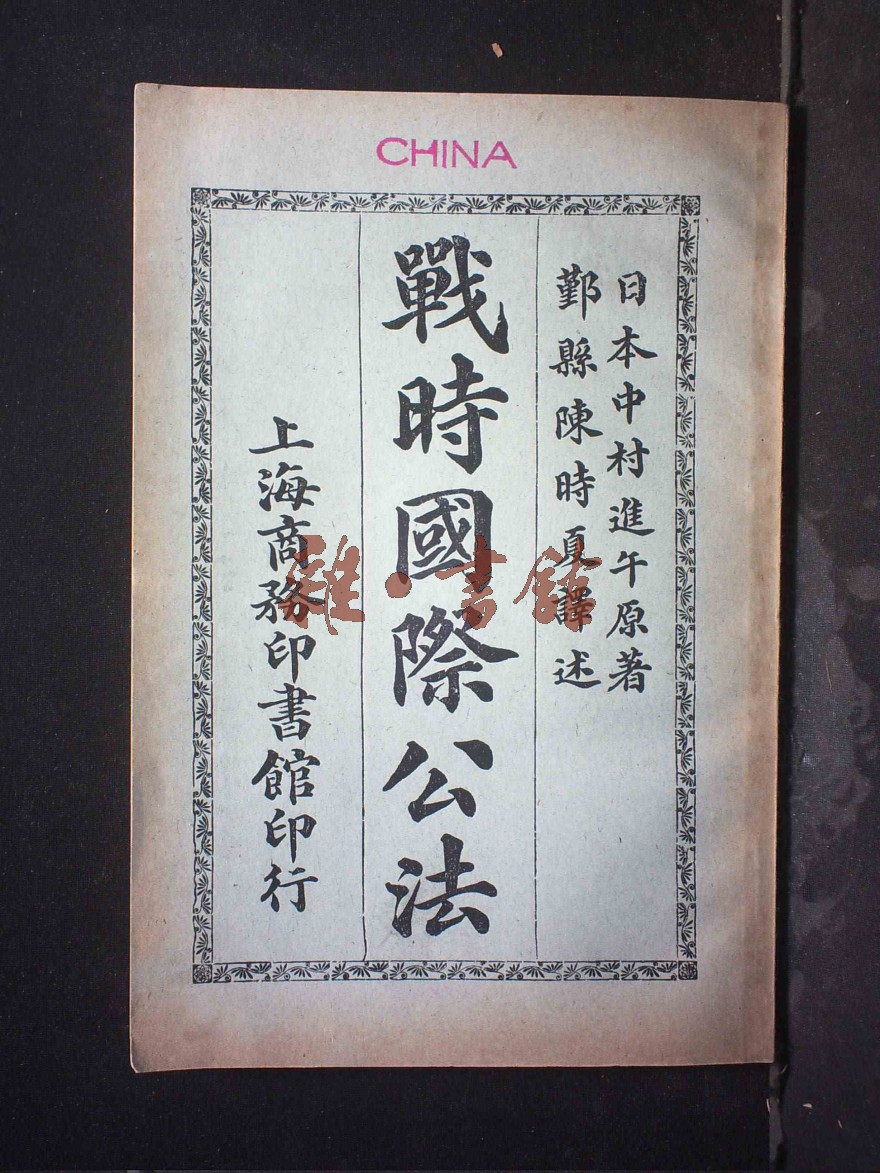 CHINA
日本中村進午原著
鄞縣陳時夏譯述
戰時國際公法
上海商務印書館印行
雜·書館